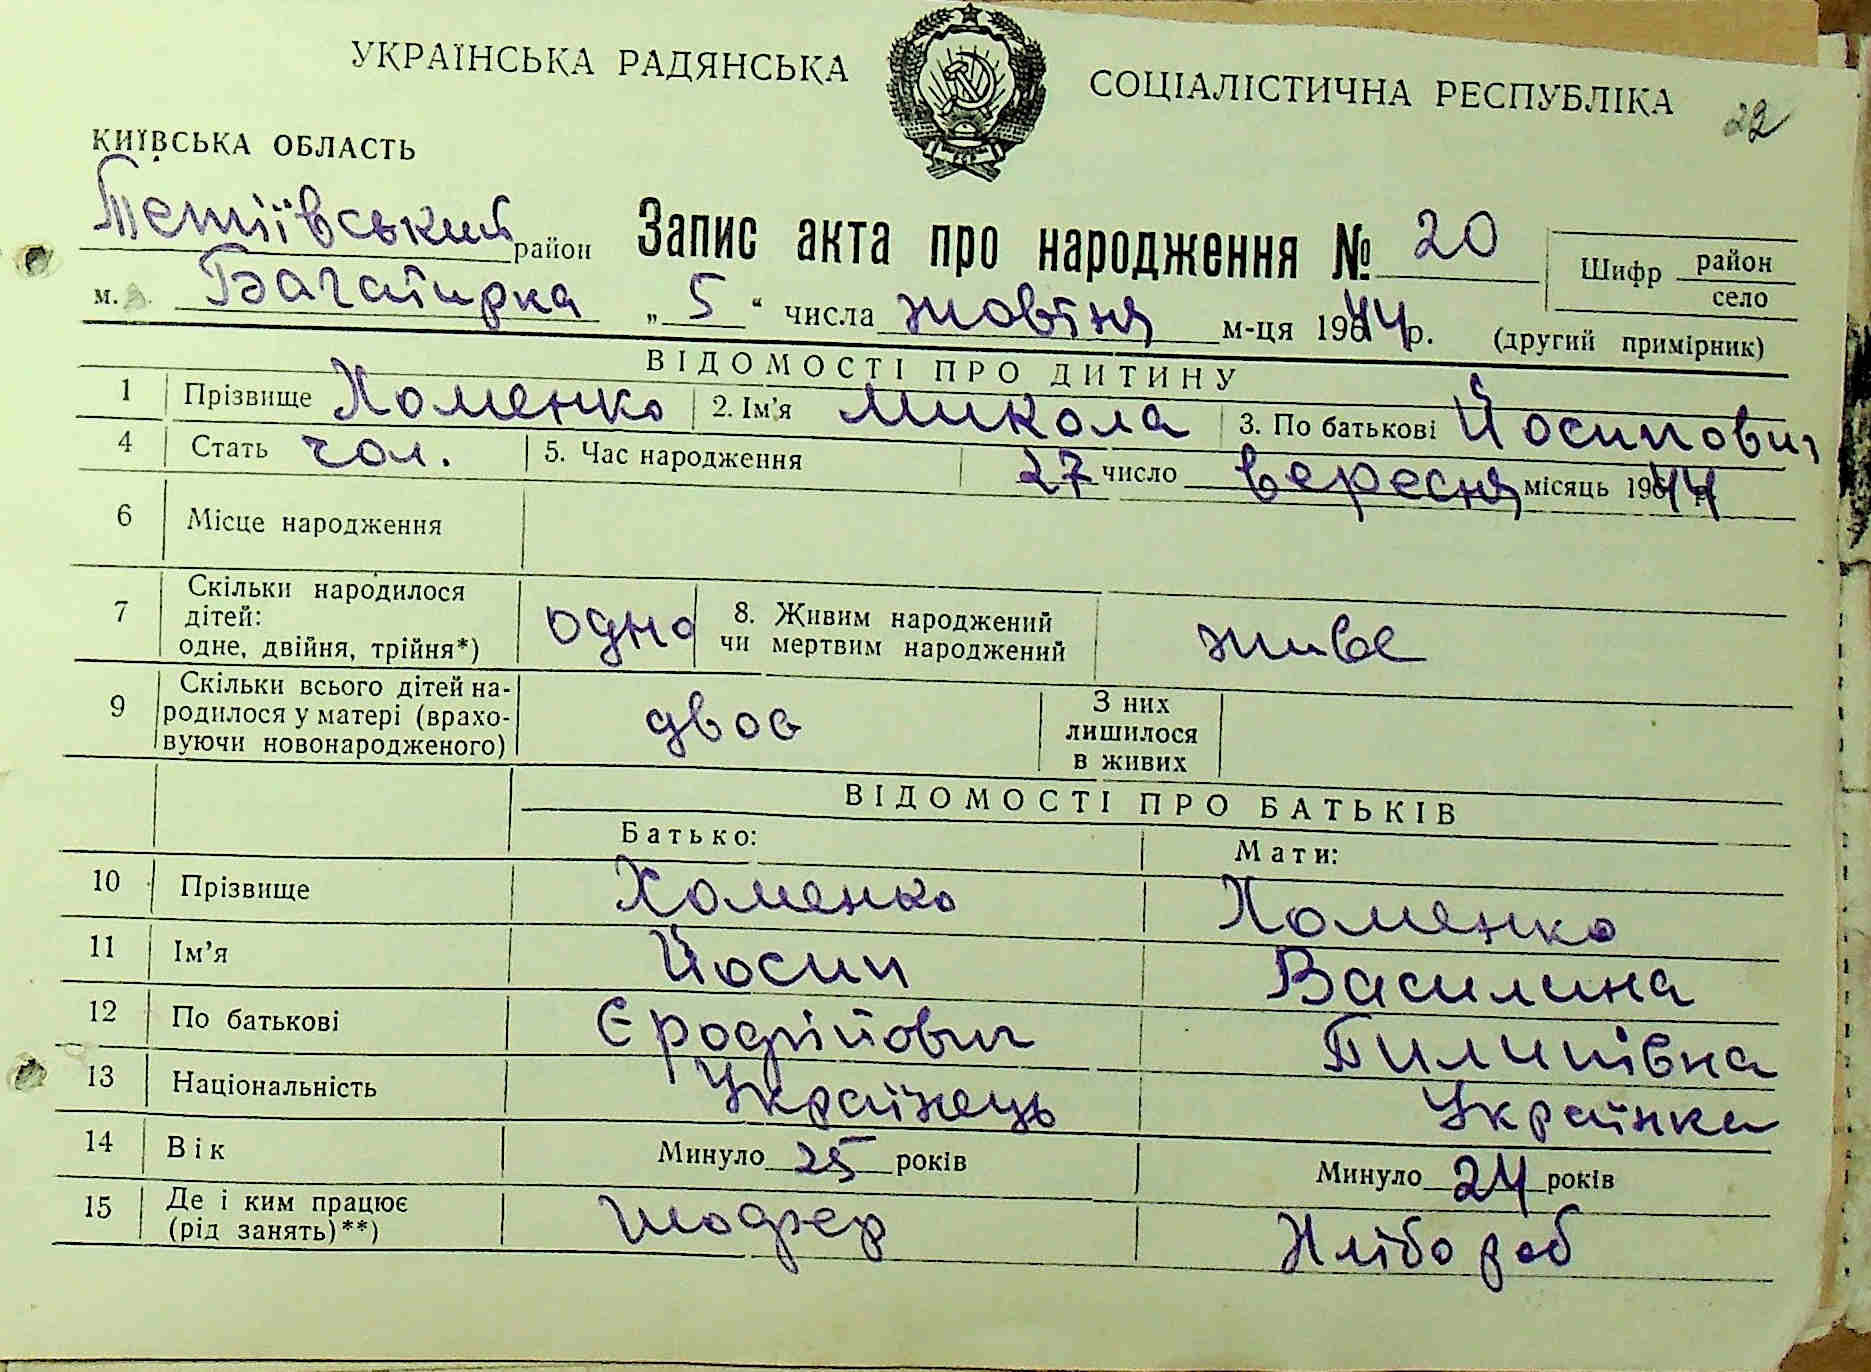 УКРАЇНСЬКА РАДЯНСЬКА СОЦІАЛІСТИЧНА РЕСПУБЛІКА
22
КИЇВСЬКА ОБЛАСТЬ
Тетіївський район Запис акта про народження № 20
Шифр район село
м. Багатирка „5“ числа жовтня м-ця 1944 р. (другий примірник)
ВІДОМОСТІ ПРО ДИТИНУ
1 Прізвище Хоменко 2. Ім’я Микола 3. По батькові Йосипович
4 Стать чол. 5. Час народження 27 число вересня місяць 1944
6 Місце народження
7 Скільки народилося дітей: одне, двійня, трійня*) одно 8. Живим народжений чи мертвим народжений живе
9 Скільки всього дітей народилося у матері (враховуючи новонародженого) двоє З них лишилося в живих
ВІДОМОСТІ ПРО БАТЬКІВ
Батько: Мати:
10 Прізвище Хоменко Хоменко
11 Ім’я Йосип Василина
12 По батькові Єродрійович Пилипівна
13 Національність Українець Українка
14 Вік Минуло 25 років Минуло 24 років
15 Де і ким працює (рід занять)**) шофер Хлібороб